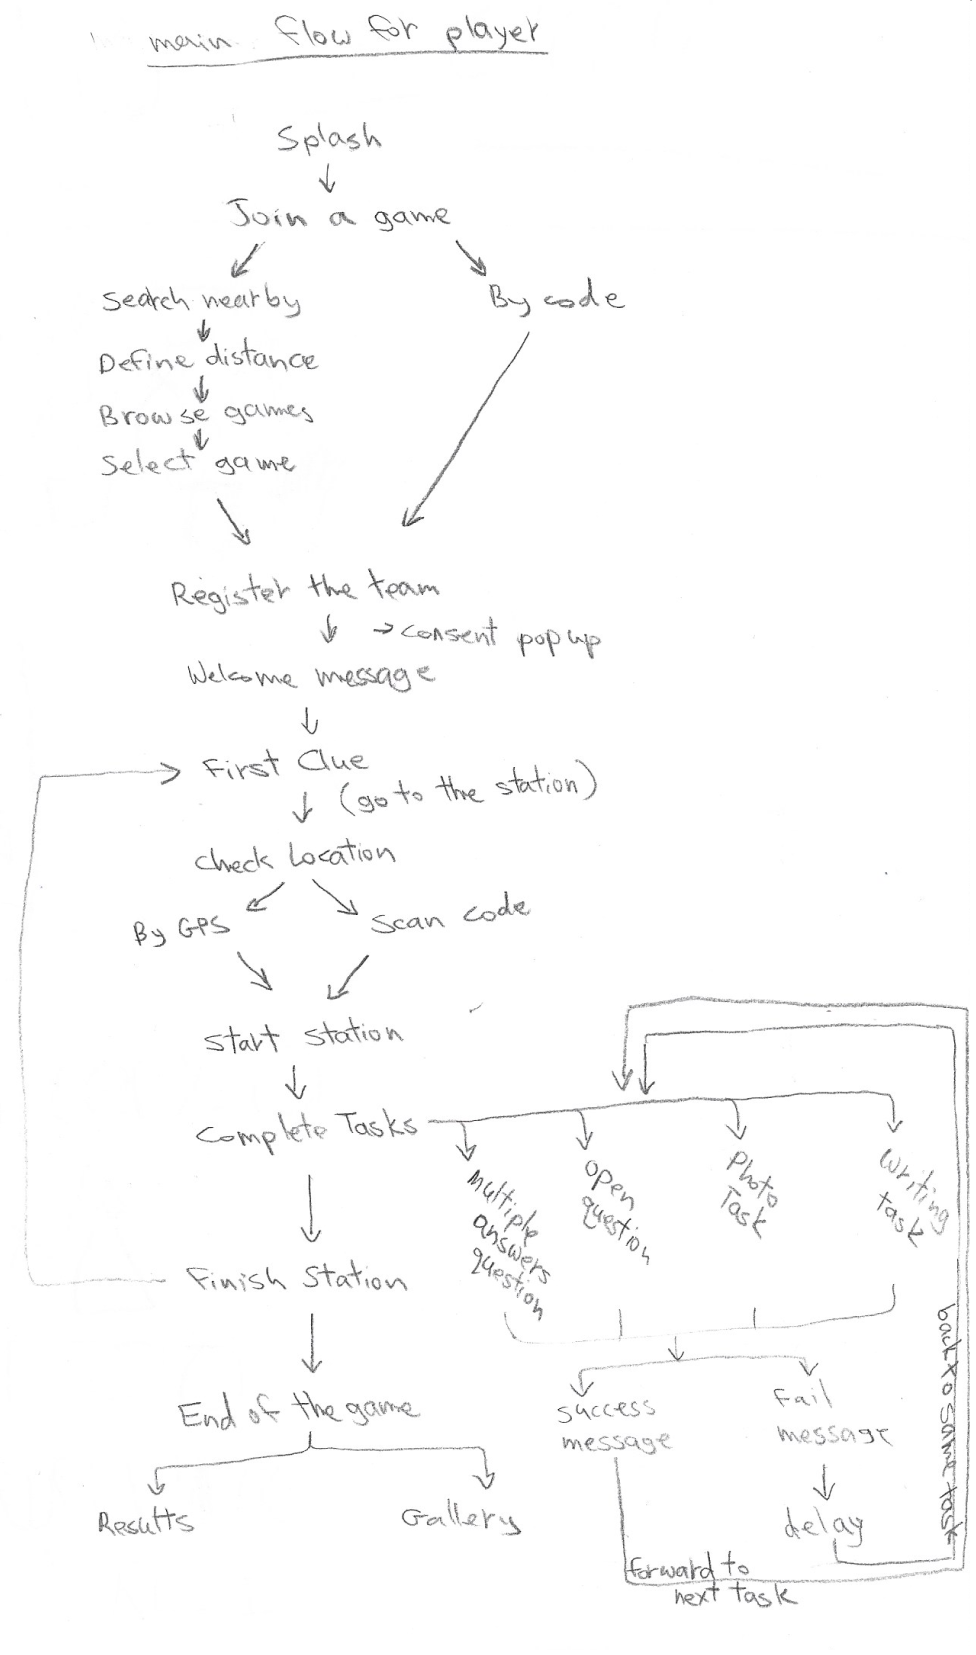 main flow for player
Splash
Join a game
Search nearby
By code
Define distance
Browse games
Select game
Register the team
→ consent pop up
Welcome message
First Clue
(go to the station)
check Location
By GPS
Scan code
Start Station
Complete Tasks
Multiple
answers
question
open
question
Photo
Task
Writing
task
Finish Station
back to same task
End of the game
success
message
Fail
message
Results
Gallery
delay
forward to
next task